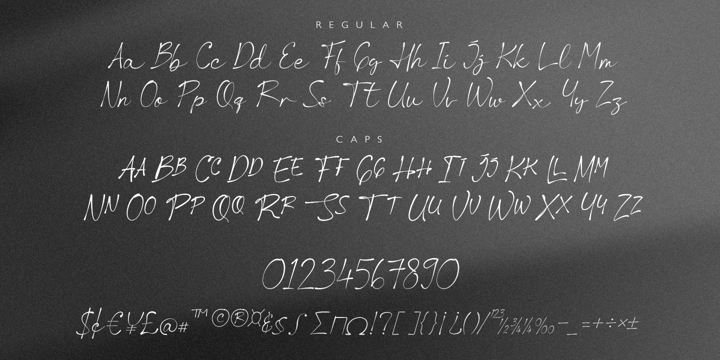 REGULAR
Aa Bb Cc Dd Ee Ff Gg Hh Ii Jj Kk Ll Mm
Nn Oo Pp Qq Rr Ss Tt Uu Vv Ww Xx Yy Zz
CAPS
AA BB CC DD EE FF GG HH II JJ KK LL MM
NN OO PP QQ RR SS TT UU VV WW XX YY ZZ
01234567890
$¢€¥£@#™©®¤&§∫∑∏Ω!?[]{}¡¿()/¹²³½¾¼‰–_=+÷×±